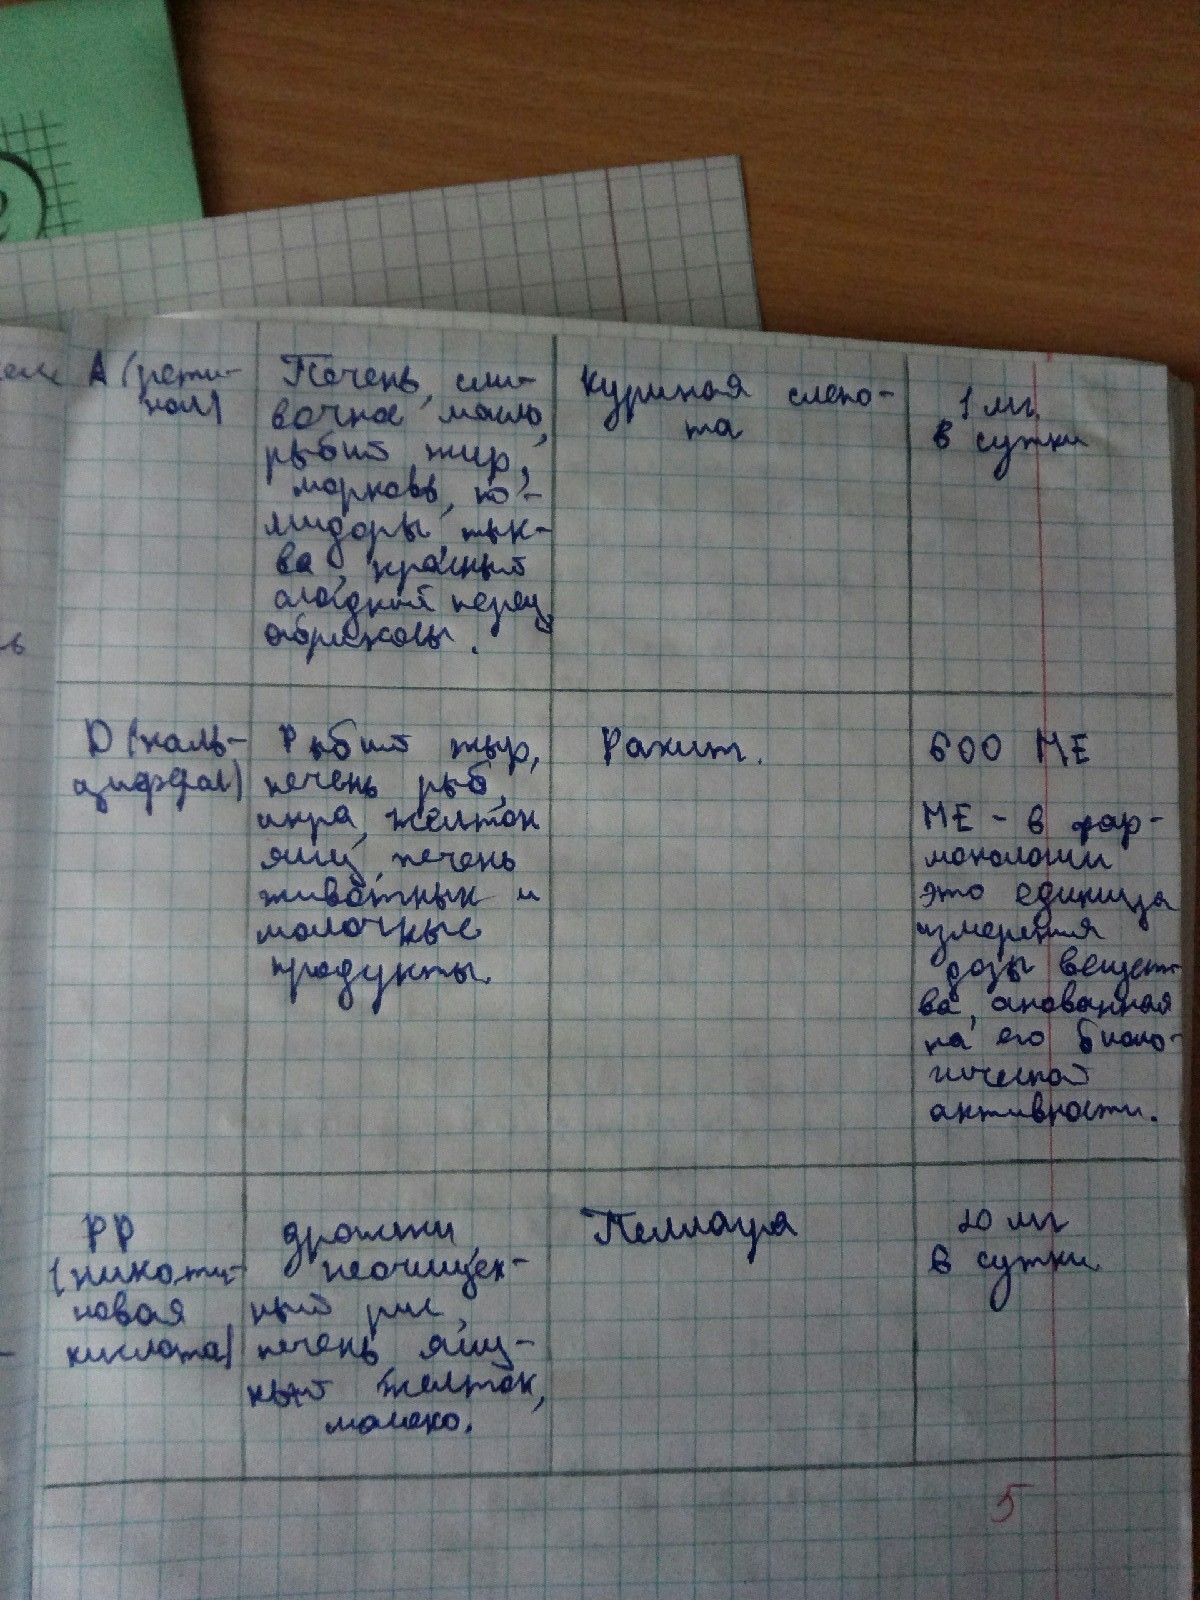 А (рети-
нол)
Печень, сли-
вочное масло,
рыбий жир,
морковь, по-
мидоры, тык-
ва, красный
сладкий перец,
абрикосы.
куриная слепо-
та
1 мг.
в сутки
D (каль-
циферол)
Рыбий жир,
печень рыб,
икра, желток
яиц, печень
животных и
молочные
продукты.
Рахит.
600 МЕ
МЕ - в фар-
мокологии
это единица
измерения
дозы вещест-
ва,
на его биоло-
гической
активности.
PP
(никоти-
новая
кислота)
дрожжи
неочищен-
ный рис,
печень яич-
ный желток,
молоко.
Пеллагра
20 мг
в сутки.
5